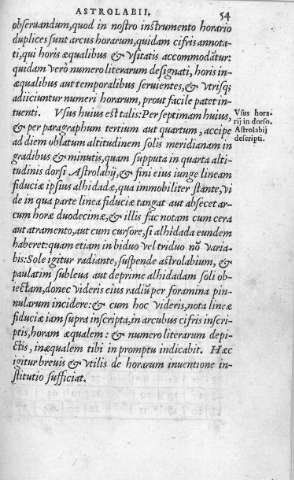 ASTROLABII, 54
obseruandum, quod in nostro instrumento horario
duplices sunt arcus horarum, quidam cifris annota-
ti, qui horis æqualibus & vsitatis accommodātur:
quidam verò numero literarum designati, horis in-
æqualibus aut temporalibus seruientes, & vtrisq;
adijciuntur numeri horarum, prout facile patet in-
tuenti. Vsus huius est talis: Per septimam huius,
& per paragraphum tertium aut quartum, accipe
ad diem oblatum altitudinem solis meridianam in
gradibus & minutis, quam supputa in quarta alti-
tudinis dorsi Astrolabij, & fini eius iunge lineam
fiduciæ ipsius alhidadæ, qua immobiliter stāte, vi
de in qua parte linea fiduciæ tangat aut absecet ar-
cum horæ duodecimæ, & illis fac notam cum cera
aut atramento, aut cum cursore, si alhidada eundem
haberet: quam etiam in biduo vel triduo nō varia-
bis: Sole igitur radiante, suspende astrolabium, &
paulatim subleua aut deprime alhidadam soli ob-
iectam, donec videris eius radiū per foramina pin-
nularum incidere: & cum hoc videris, nota lineæ
fiduciæ iam supra inscripta, in arcubus cifris inscri-
ptis, horam æqualem: & numero literarum depi-
ctis, inæqualem tibi in promptu indicabit. Hæc
igitur breuis & vtilis de horarum inuentione in-
stitutio sufficiat.
Vsus hora-
rij in dorso
Astrolabij
descripti.